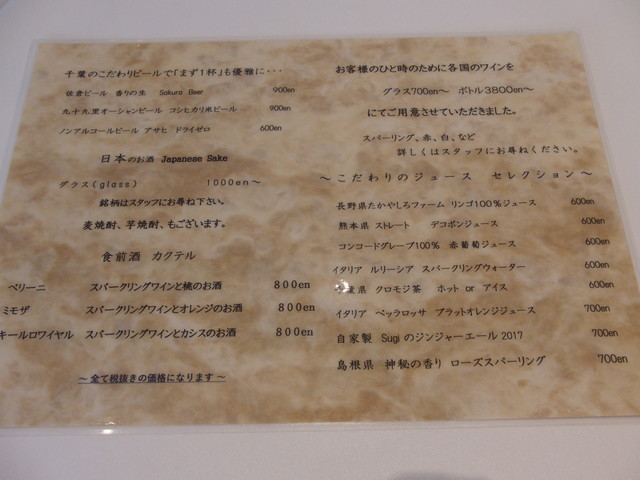 千葉のこだわりビールで「まず1杯」も優雅に・・・
佐倉ビール 香りの生 Sakura Beer 900en
九十九里オーシャンビール コシヒカリ米ビール 900en
ノンアルコールビール アサヒ ドライゼロ 600en
日本のお酒 Japanese Sake
グラス(glass) 1000en～
銘柄はスタッフにお尋ね下さい。
麦焼酎、芋焼酎、もございます。
食前酒 カクテル
ベリーニ スパークリングワインと桃のお酒 800en
ミモザ スパークリングワインとオレンジのお酒 800en
キールロワイヤル スパークリングワインとカシスのお酒 800en
～全て税抜きの価格になります～
お客様のひと時のために各国のワインを
グラス700en～ ボトル3800en～
にてご用意させていただきました。
スパーリング、赤、白、など
詳しくはスタッフにお尋ねください。
～こだわりのジュース セレクション～
長野県たかやしろファーム リンゴ100％ジュース 600en
熊本県 ストレート デコポンジュース 600en
コンコードグレープ100％ 赤葡萄ジュース 600en
イタリア ルリーシア スパークリングウォーター 600en
県 クロモジ茶 ホット or アイス 600en
イタリア ベッラロッサ ブラットオレンジジュース 700en
自家製 Sugiのジンジャーエール2017 700en
島根県 神秘の香り ローズスパーリング 700en